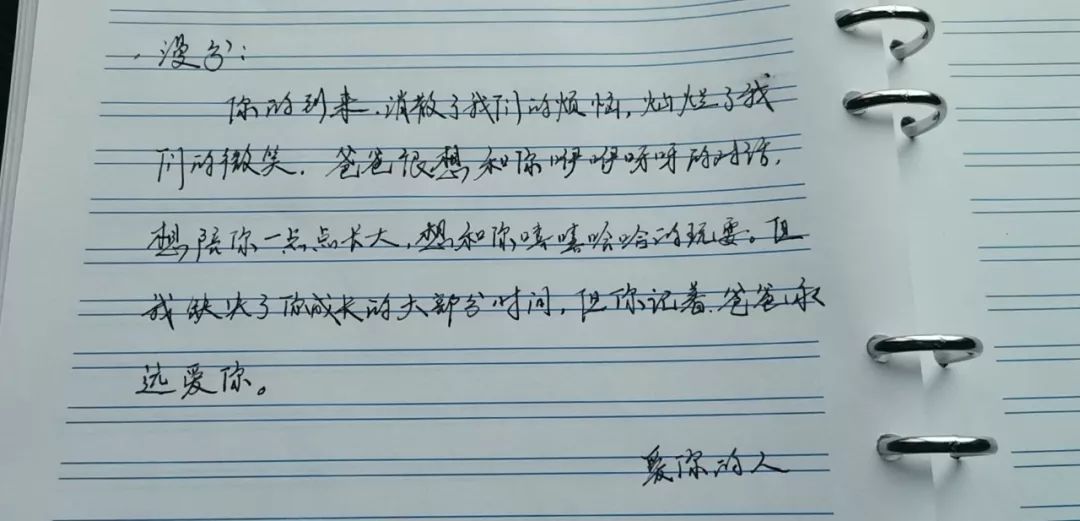 漫兮：
你的到来，消散了我们的烦恼，灿烂了我
们的微笑。爸爸很想和你咿咿呀呀的对话，
想陪你一点点长大，想和你嘻嘻哈哈的玩耍。但
我缺失了你成长的大部分时间，但你记着，爸爸永
远爱你。
爱你的人